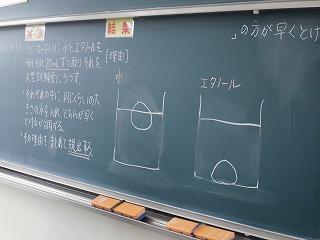 結果
」の方が早くとけ
[理由]
・ビーカー(小)に 水とエタノールを
それぞれ20mLずつ取り それを
大型試験管にうつす。
・それぞれの中に 同じくらいの大
きさの氷を入れ、どちらが早く
とけるか調べる。
・その理由をまとめて提出する。
水
エタノール